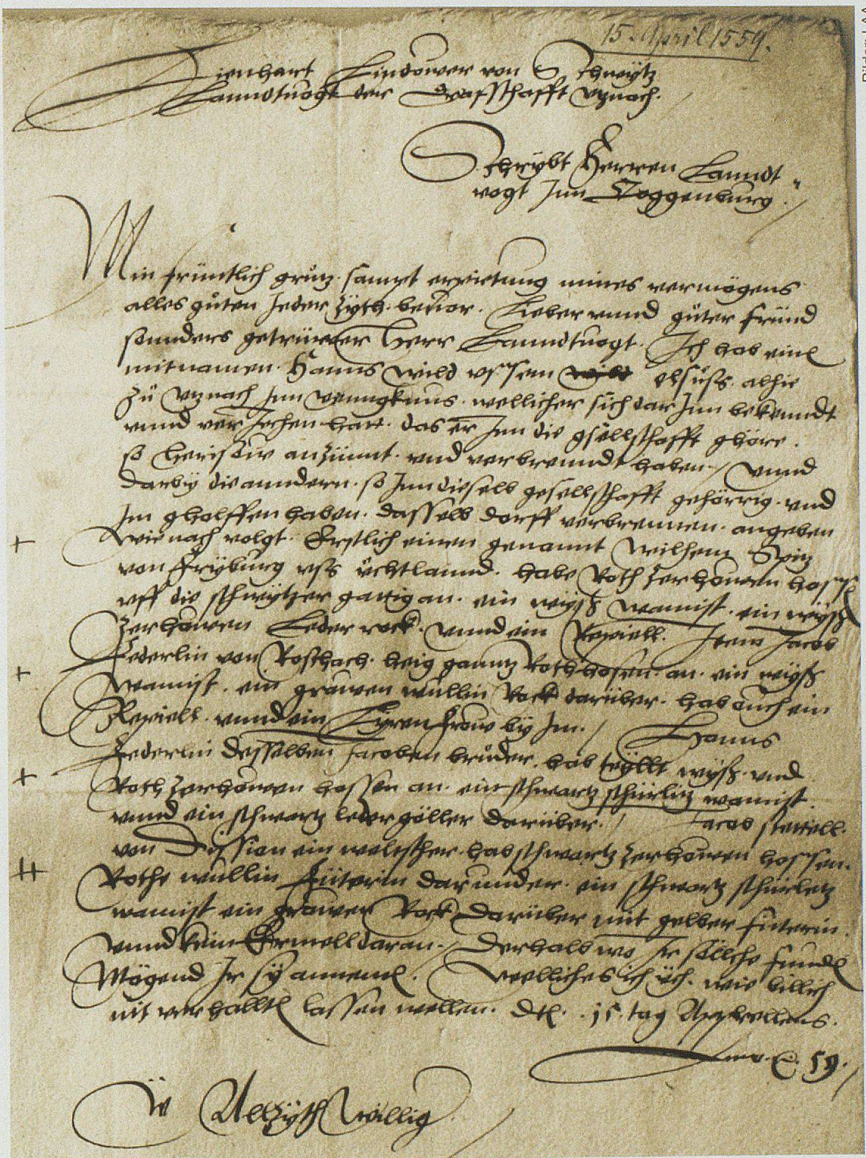 15. April 1559.
Lienhart Lindower von Schwytz
Lanndtuogt der Grafschafft Vznach.
Schrybt Herren Lanndt
vogt Jnn Toggenburg.
Min früntlich grůtz sampt erpietung mines vermögens
alles gůten Jeder Zyth beuor. Lieber vnnd gůter fründ
sonnders getrüwer Herr Lanndtuogt. Jch hab einen
mitnamen Hanns Wild vssem albie
Zů Vznach Jnn venngknus. wellicher sich dar Jnn bekenndt
vnnd ver Jechen hatt. das er Jnn die gsellschafft ghöre.
so Herisow anzünnt. vnd verbrenndt haben. / vnnd
darby die anndern. so Jnn dieselb gesellschafft gehörrig. vnd
Jm gholffen haben. dasselb dorff verbrennen. angeben
wie nach volgt. Erstlich einen genannt Wilhem Spitz
von Fryburg vss üchtlannd. habe Roth Zerhowen hossen
vff die schwytzer gattig an. ein wyss wamist. ein wyss
Zerhowen Leder rock. vnnd ein Rapiell. Jtem Jacob
Federlin von Roschach. heig ganntz Roth hosen. an. ein wyss
wamist. ein growen wullin Rock darüber. hab ouch ein
Rapiell. vnnd ein frow by Jm. / Hanns
Federlin desselben Jacoben brůder. hab teyllt wyss. vnd
Roth Zerhowen hossen an. ein schwartz schürlitz wamist.
vnnd ein schwartz leder göller darüber. / Jacob
von ein welscher. hab schwartz Zerhowen hossen.
Rothe wullin Fůterin darunder. ein schwartz schürletz
wamist ein grower Rock darüber mit gelber fůterin.
vnnd kein Ermell daran. / Derhalb wo Jr sölliche funden
Mögend Jr sy annemen. Welliches ich üch. wie billich
nit verhallten lassen wellen. Dtt. 15 tag Apprellens.
Anno. 59.
Ü Allzyth Willig